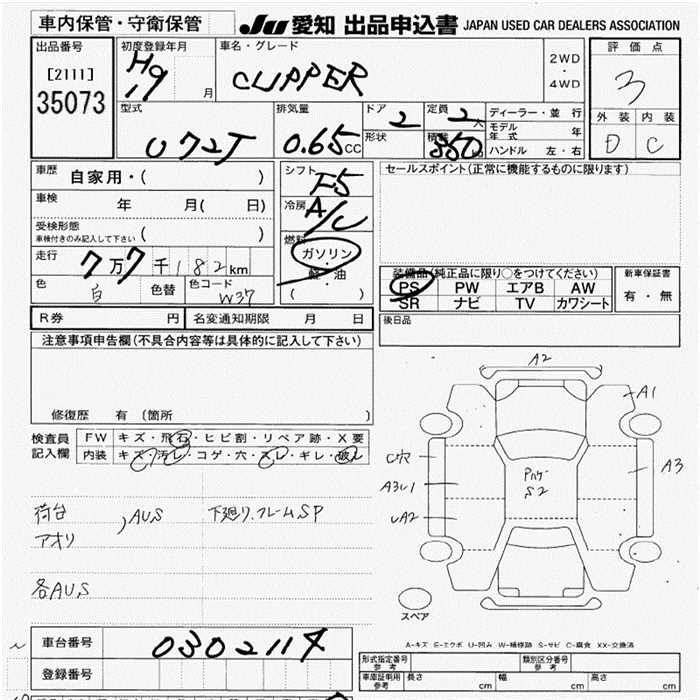 車内保管・守衛保管
JU 愛知 出品申込書 JAPAN USED CAR DEALERS ASSOCIATION
出品番号
[2111]
35073
初度登録年月
H9
19
月
車名・グレード
CLIPPER
2WD
・
4WD
評価点
3
外装 内装
D C
型式
U72T
排気量
0.65 CC
ドア
2
形状
定員
2 人
積載
350 kg
ディーラー・並行
モデル年式 年
ハンドル 左・右
車歴
自家用・( )
車検
年 月( 日)
受検形態
車検付きのみ記入して下さい ( )
走行
7万7千182km
色 白 色替 色コード W37
シフト
F5
冷房
A/C
燃料
ガソリン
・
軽・油
( )
セールスポイント(正常に機能するものに限ります)
装備品(純正品に限り○をつけてください)
PS PW エアB AW
SR ナビ TV カワシート
新車保証書
有・無
R券 円 名変通知期限 月 日
後日品
注意事項申告欄(不具合内容等は具体的に記入して下さい)
修復歴 有 〔箇所 〕
検査員
記入欄
FW キズ・飛石・ヒビ割・リペア跡・X要
内装 キズ・汚レ・コゲ・穴・スレ・ギレ・破レ
荷台
アオリ
, AUS
下廻り、フレームSP
各AUS
A2
A1
C穴
A3
UA2
A3
S2
スペア
A-キズ E-エクボ U-凹み W-補修跡 S-サビ C-腐食 XX-交換済
車台番号 0302114
登録番号
形式指定番号
参考
類別区分番号
参考
車庫証明用
参考
長さ cm 幅 cm 高さ cm